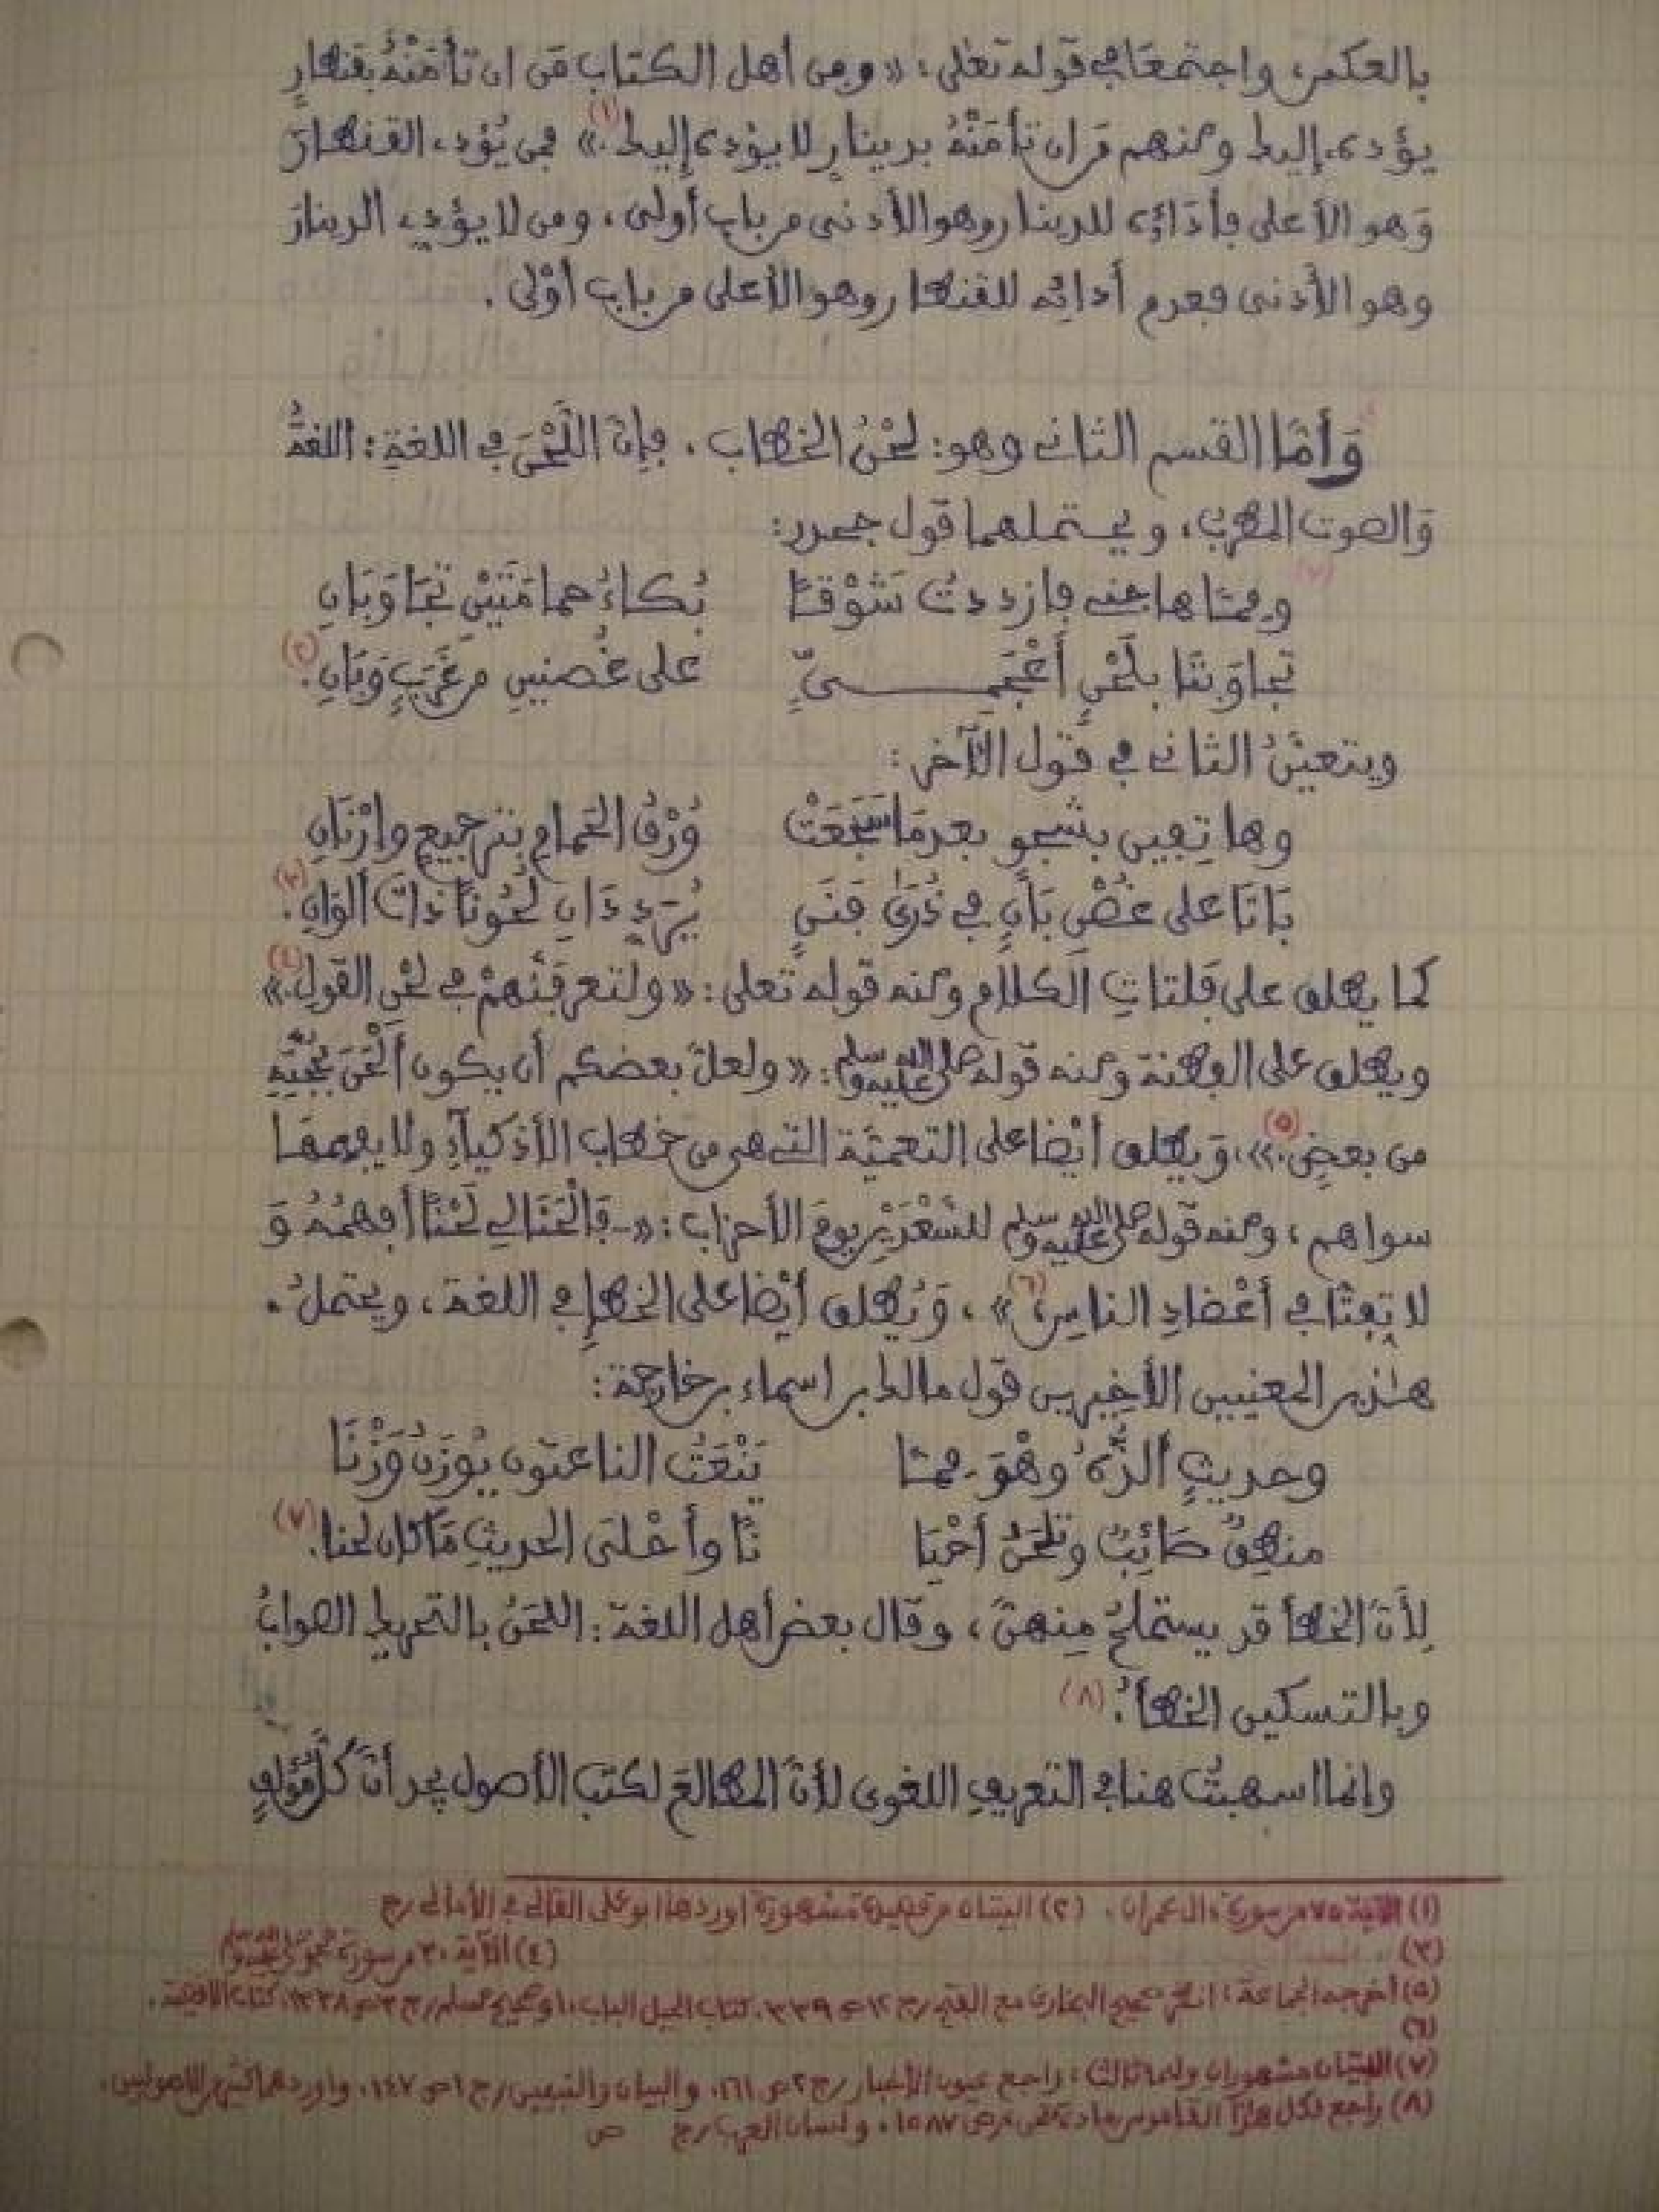 بالعكس، واجتمعَا في قوله تعلى: «ومن أهل الكتاب مَن ان تأمَنْهُ بقنطارٍ
يؤده إليك ومنهم مَن ان تأمَنْهُ بدينارٍ لا يؤده إليك.(١)» فمن يُؤدِ القنطارَ
وَهو الأعلى فأدَاؤه للدينار وهو الأدنى من باب أولى، ومن لا يؤدِي الدينارَ
وهو الأدنى فعدم أدائِه للقنطار وهو الأعلى من باب أوْلى.
وَأمَّا القسم الثاني وهو: لحْنُ الخطاب. فإنّ اللّحْنَ في اللغةِ: اللغةُ
وَالصوت المطرب، ويحتملهما قول جحدر:
ومِمَّا هاجني فازددتُ شَوْقًا بُكاءُ حمامَتَيْنِ تَجَاوَبَانِ
تَجاوَبَتَا بلَحْنٍ أعْجَمِـــــيٍّ على غُصنينِ من غَرَبٍ وَبَانِ.(٢)
ويتعيّنُ الثاني في قول الآخر:
وهَا تِفينِ بشجوٍ بعدمَا سَجَعَتْ وُرْقُ الحَمامِ بترجيعٍ وارْنَانِ
بَاتَا على غُصْنِ بَانٍ في ذُرَىٰ فَنَنٍ يُرَدِّدَانِ لُحُونًا ذاتَ ألوانِ.(٣)
كما يطلق على فَلتاتِ الكلام ومنه قوله تعلى: «ولتعرفَنَّهمْ في لحْنِ القول.(٤)»
ويطلق على الفطنة ومنه قوله صلى الله عليه وسلم: «ولعلّ بعضكم أن يكون ألْحَنَ بحُجَّتِهِ
من بعضٍ.(٥)»، وَيطلق أيْضا على التعميَة التي هي من خطاب الأذكياءِ ولا يفهمهَا
سواهم، ومنه قوله صلى الله عليه وسلم للسَّعْدَيْنِ يومَ الأحزاب: «-فَالْحَنَا لي لَحْنًا أفهمُهُ وَ
لا تفتّا في أعْضادِ الناسِ(٦)»، وَيُطلق أيْضا على الخطإِ في اللغة، ويحتملُ.
هـٰذين المعنيين الأخيرين قول مالك بن اسماء بن خارجة:
وحديثٍ ألذُّهُ وهْوَ مِمّا يَنْعَتُ الناعتون يُوزَنُ وَزْنَا
منطِقٌ صَائِبٌ وتلحَنُ أحْيَا نًا وأحْلَى الحديثِ مَا كان لحنا.(٧)
لِأنّ الخطأ قد يستملحُ مِنهنّ، وقال بعض أهل اللغة: اللحَنُ بالتحريك الصوابُ
وبالتسكين الخطأُ.(٨)
وانما اسهبتُ هنا في التعريفِ اللغوى لأنّ المطالعَ لكتب الأصول يجد أنّ كُلَّ مُؤلِفٍ
(١) الآية ٧٥ من سورة ءال عمران. (٢) البيتان من قصيدة مشهورة اوردها ابو على القالى في الأمالى ج
(٣) (٤) الآية ٣٠ من سورة محمد صلى الله عليه وسلم
(٥) أخرجه الجماعة، انظر صحيح البخارى مع الفتح ج ١٢ ص ٣٣٩. كتاب الحيل الباب ١٠ وصحيح مسلم ج ٣ ص ١٣٣٨. كتاب الاقضية.
(٦)
(٧) البيتان مشهوران ولهما ثالث، راجع عيون الأخبار ج ٢ ص ١٦١، والبيان والتبيين ج ١ ص ١٤٧، واوردهما كثير للاصوليين.
(٨) راجع لكل هذا القاموس مادة لحن ص ١٥٨٧، ولسان العرب ج ص